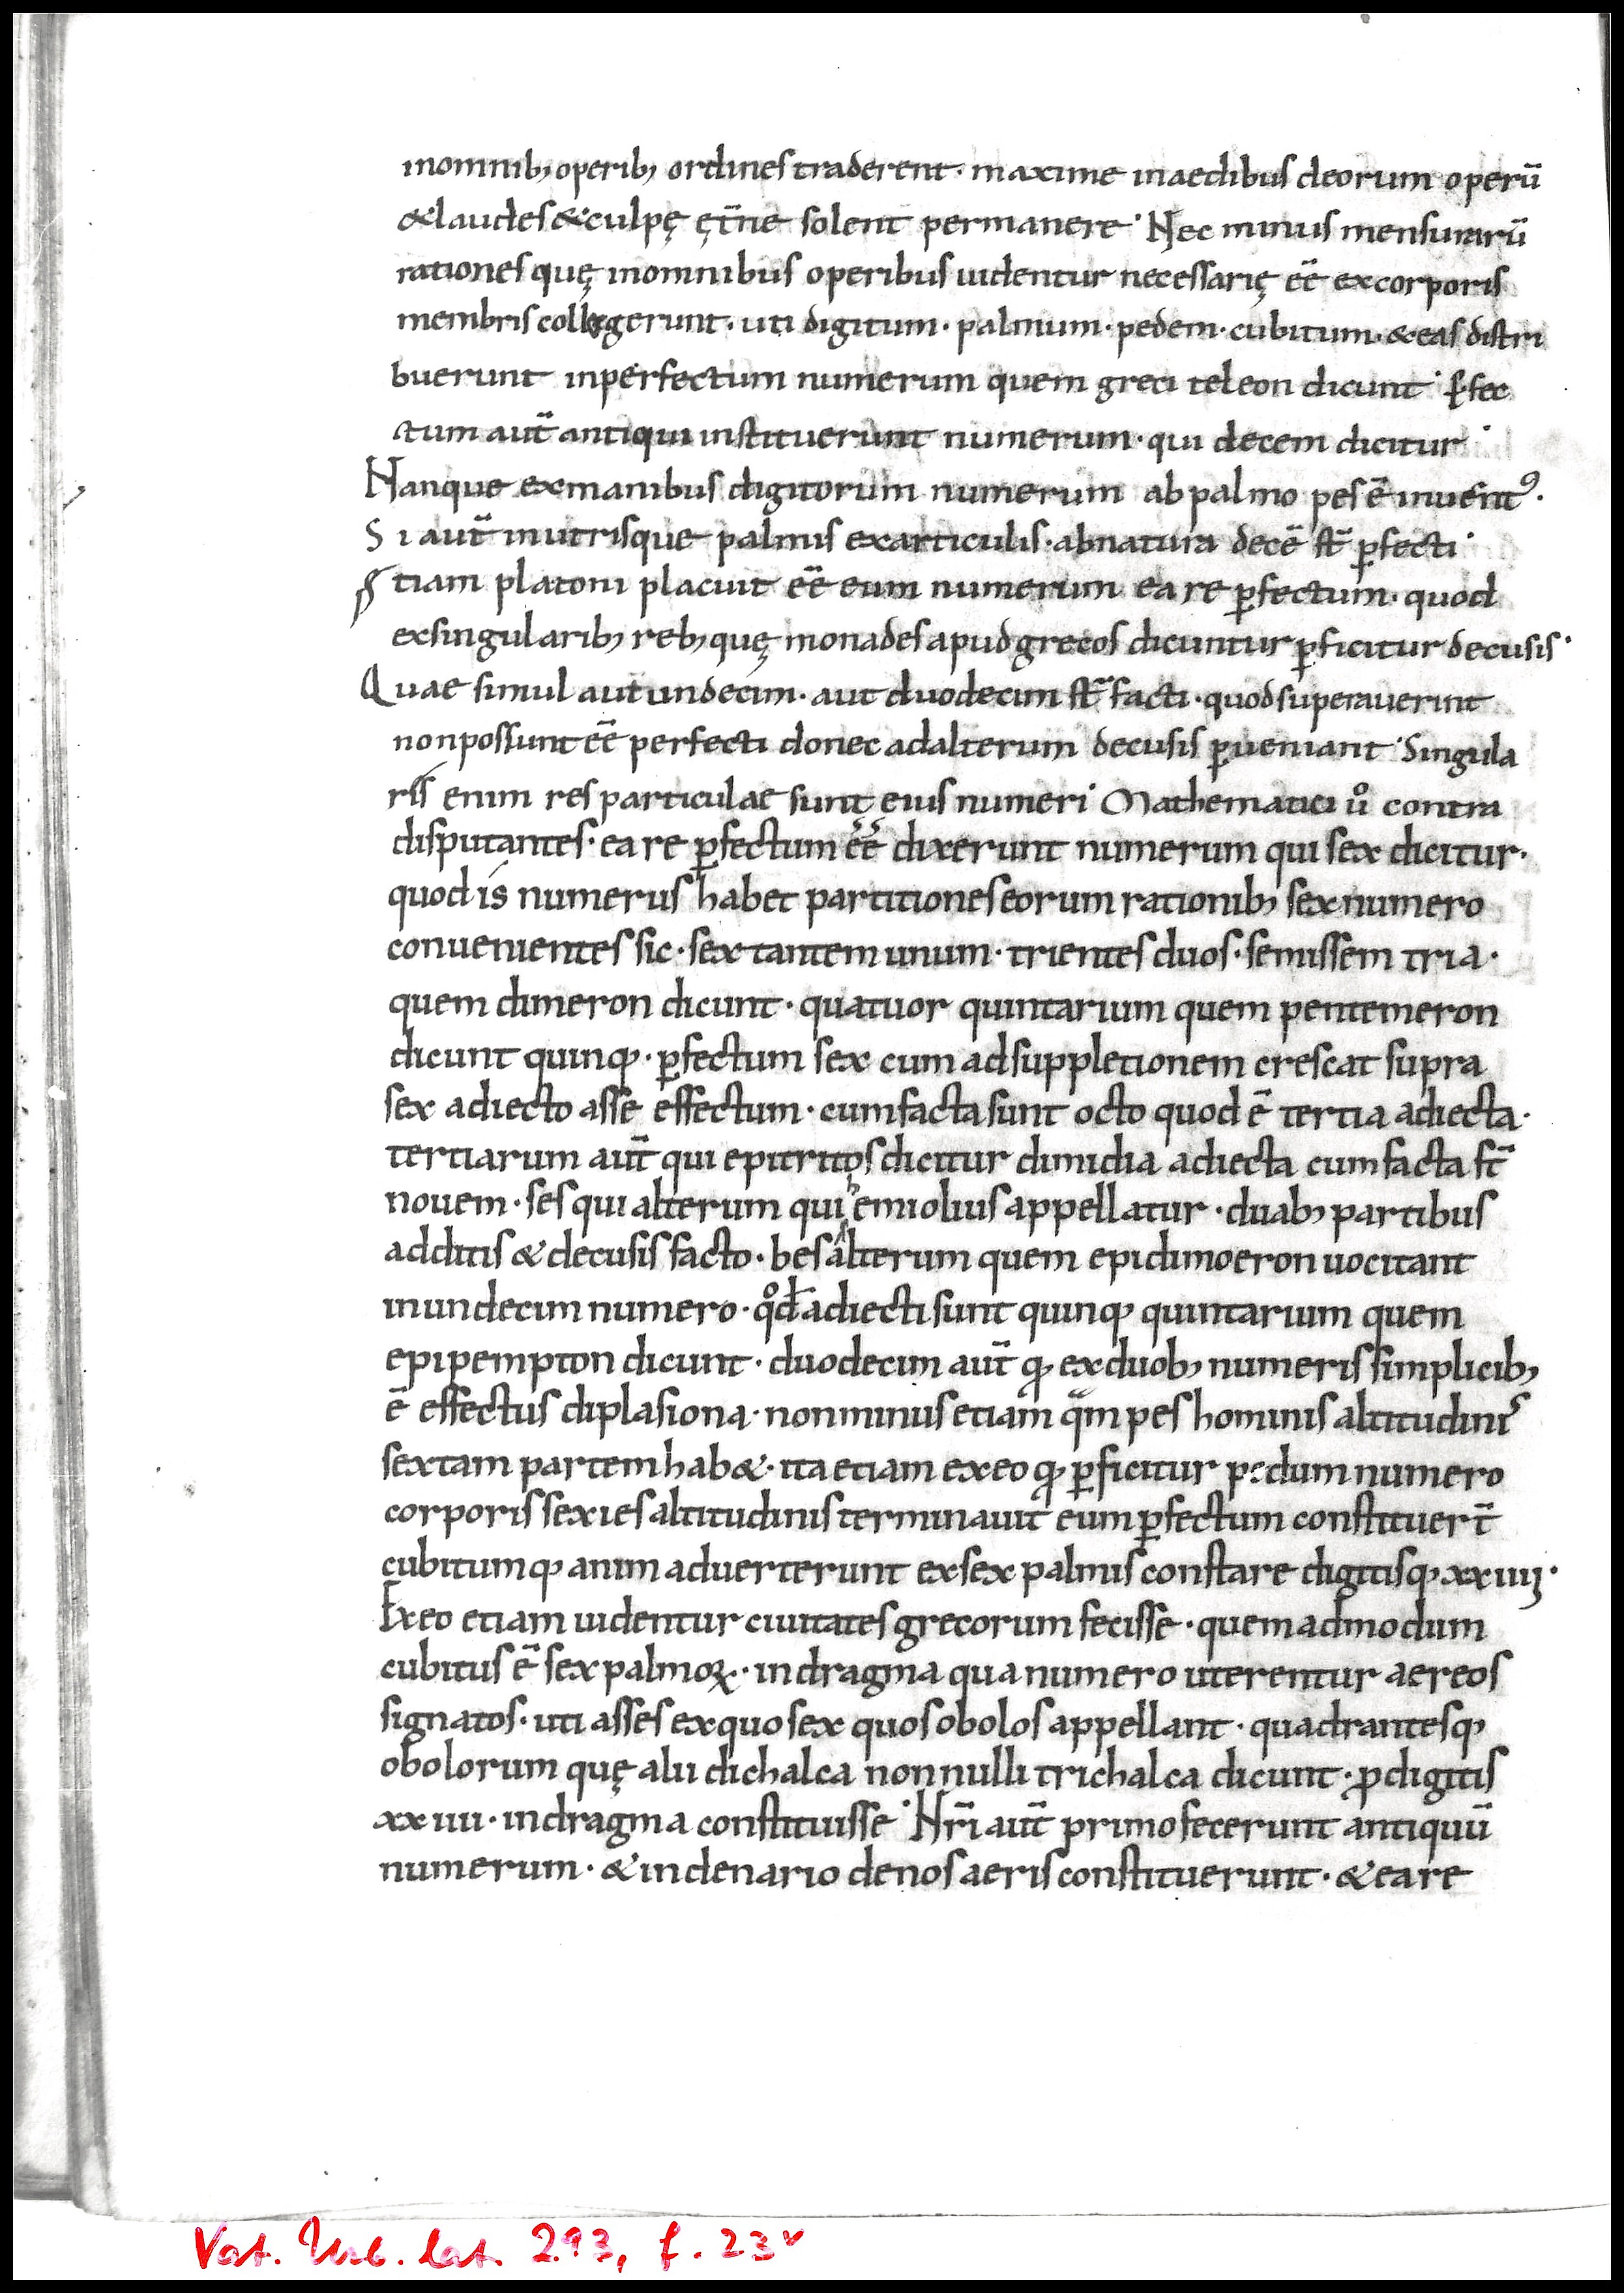 inomnib; operib; ordines traderent · maxime inaedibus deorum operū
&laudes &culpę ęt̄ne solent permanere · Nec minus mensurarū
rationes quę inomnibus operibus uidentur necessarię eē excorporis
membris collegerunt · uti digitum · palmum · pedem · cubitum · &eas distri
buerunt inperfectum numerum quem greci teleon dicunt · ꝑfec
tum aut̄ antiqui instituerunt numerum · qui decem dicitur ·
Nanque exmanibus digitorum numerum ab palmo pes ē inuentꝰ.
Si aut̄ inutrisque palmis exarticulis · abnatura decē st̄ ꝑfecti ·
Etiam platoni placuit eē eum numerum ea re ꝑfectum · quod
exsingularib; reb; quę monades apud grecos dicuntur ꝑficitur decusis ·
Quae simul aut undecim · aut duodecim st̄ facti · quod superauerint
non possunt eē perfecti donec adalterum decusis ꝑueniant · Singula
ris enim res particulae sunt eius numeri · Mathematici uº contra
disputantes · ea re ꝑfectum eē dixerunt numerum qui sex dicitur ·
quod is numerus habet partitiones eorum rationib; sex numero
conuenientes sic · sextantem unum · trientes duos · semissem tria ·
quem dimeron dicunt · quatuor quintarium quem pentemeron
dicunt quinq; · ꝑfectum sex cum adsuppletionem crescat supra
sex adiecto asse effectum · cum facta sunt octo quod ē tertia adiecta ·
tertiarum aut̄ qui epitritos dicitur dimidia adiecta cum facta st̄
nouem · sesqui alterum qui hemiolius appellatur · duab; partibus
additis & decusis facto · bes alterum quem epidimoeron uocitant
inundecim numero · qºd adiecti sunt quinq; quintarium quem
epipempton dicunt · duodecim aut̄ q; exduob; numeris simplicib;
ē effectus diplasiona · non minus etiam qm̄ pes hominis altitudinis
sextam partem hab& · ita etiam exeo q; ꝑficitur pedum numero
corporis sexies altitudinis terminauit eum ꝑfectum constituert̄
cubitumq; animaduerterunt exsex palmis constare digitisq; xxiiij ·
Exeo etiam uidentur ciuitates grecorum fecisse · quem admodum
cubitus ē sex palmoꝝ · indragma qua numero uterentur aereos
signatos · uti asses exquo sex quos obolos appellant · quadrantesq;
obolorum quę alii dichalca nonnulli trichalca dicunt · ꝓdigitis
xxiiii · indragma constituisse · Nr̄i aut̄ primo fecerunt antiquū
numerum · &indenario denos aeris constituerunt · &eare
Vat. Urb. lat. 293, f. 23v